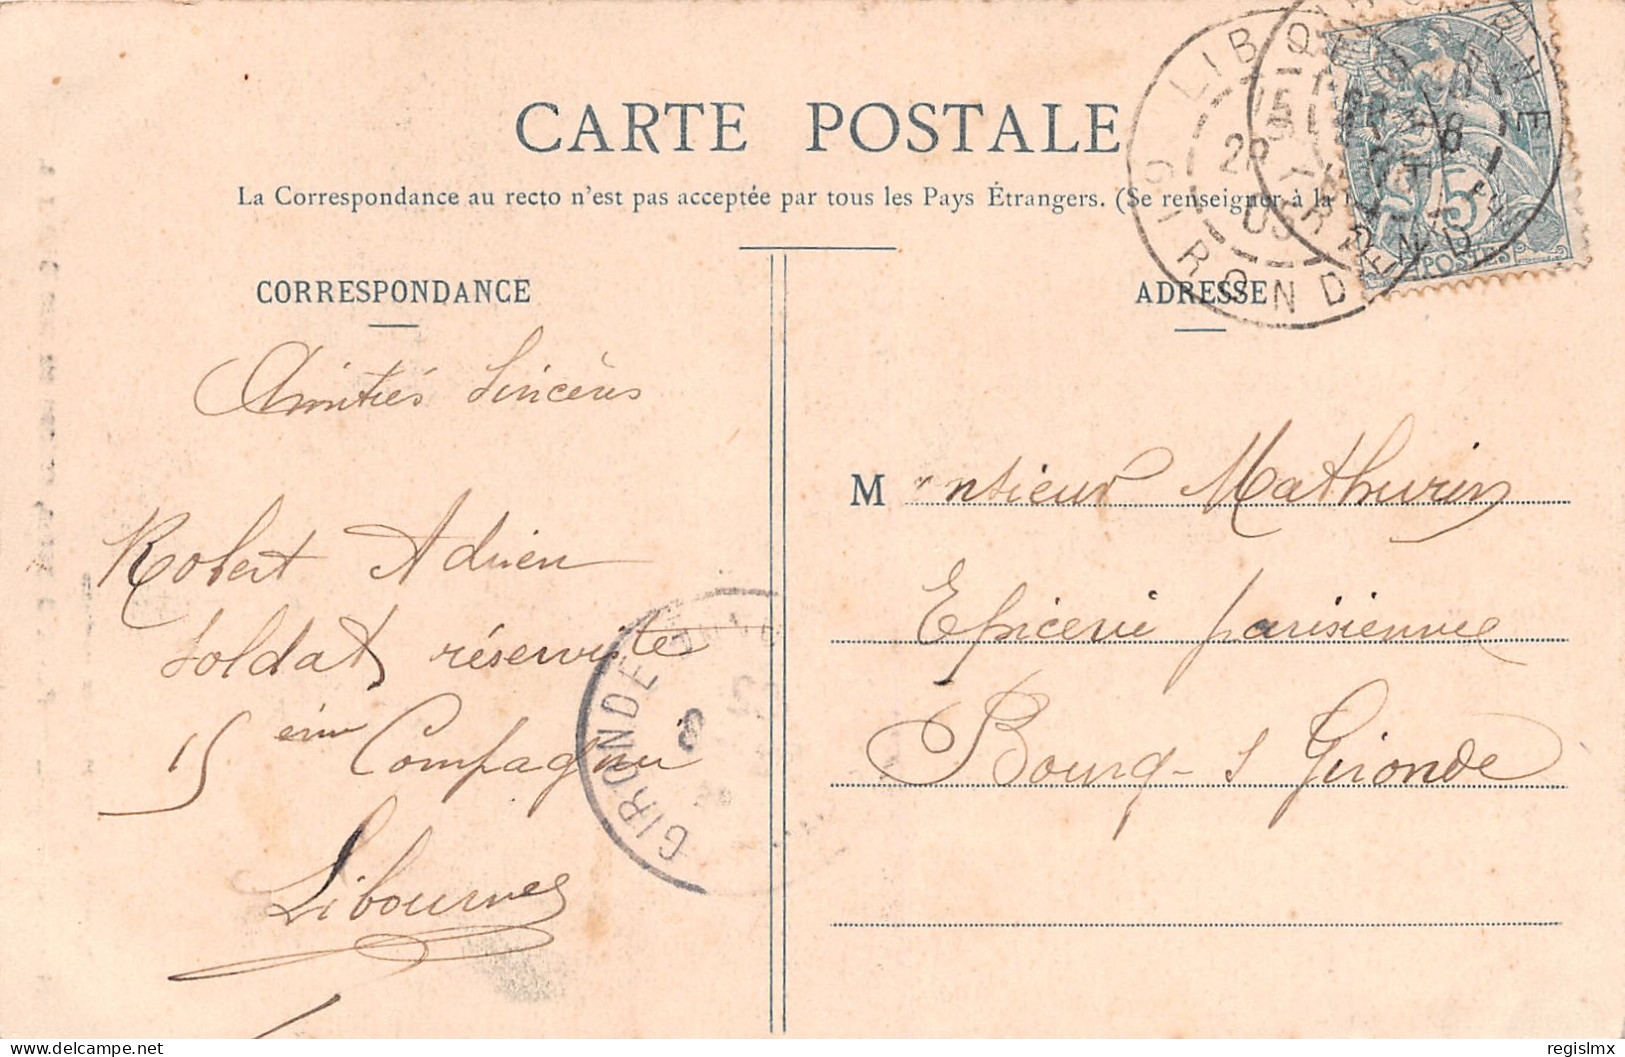 CARTE POSTALE
La Correspondance au recto n'est pas acceptée par tous les Pays Étrangers. (Se renseigner à la
CORRESPONDANCE
Amitiés Sincères
Robert Adrien
Soldat réserviste
15 ème Compagnie
Libourne
GIRONDE
ADRESSE
LIBOURNE
GIRONDE
5
POSTES
Monsieur Mathurin
Epicerie parisienne
Bourg - s Gironde
regislmx